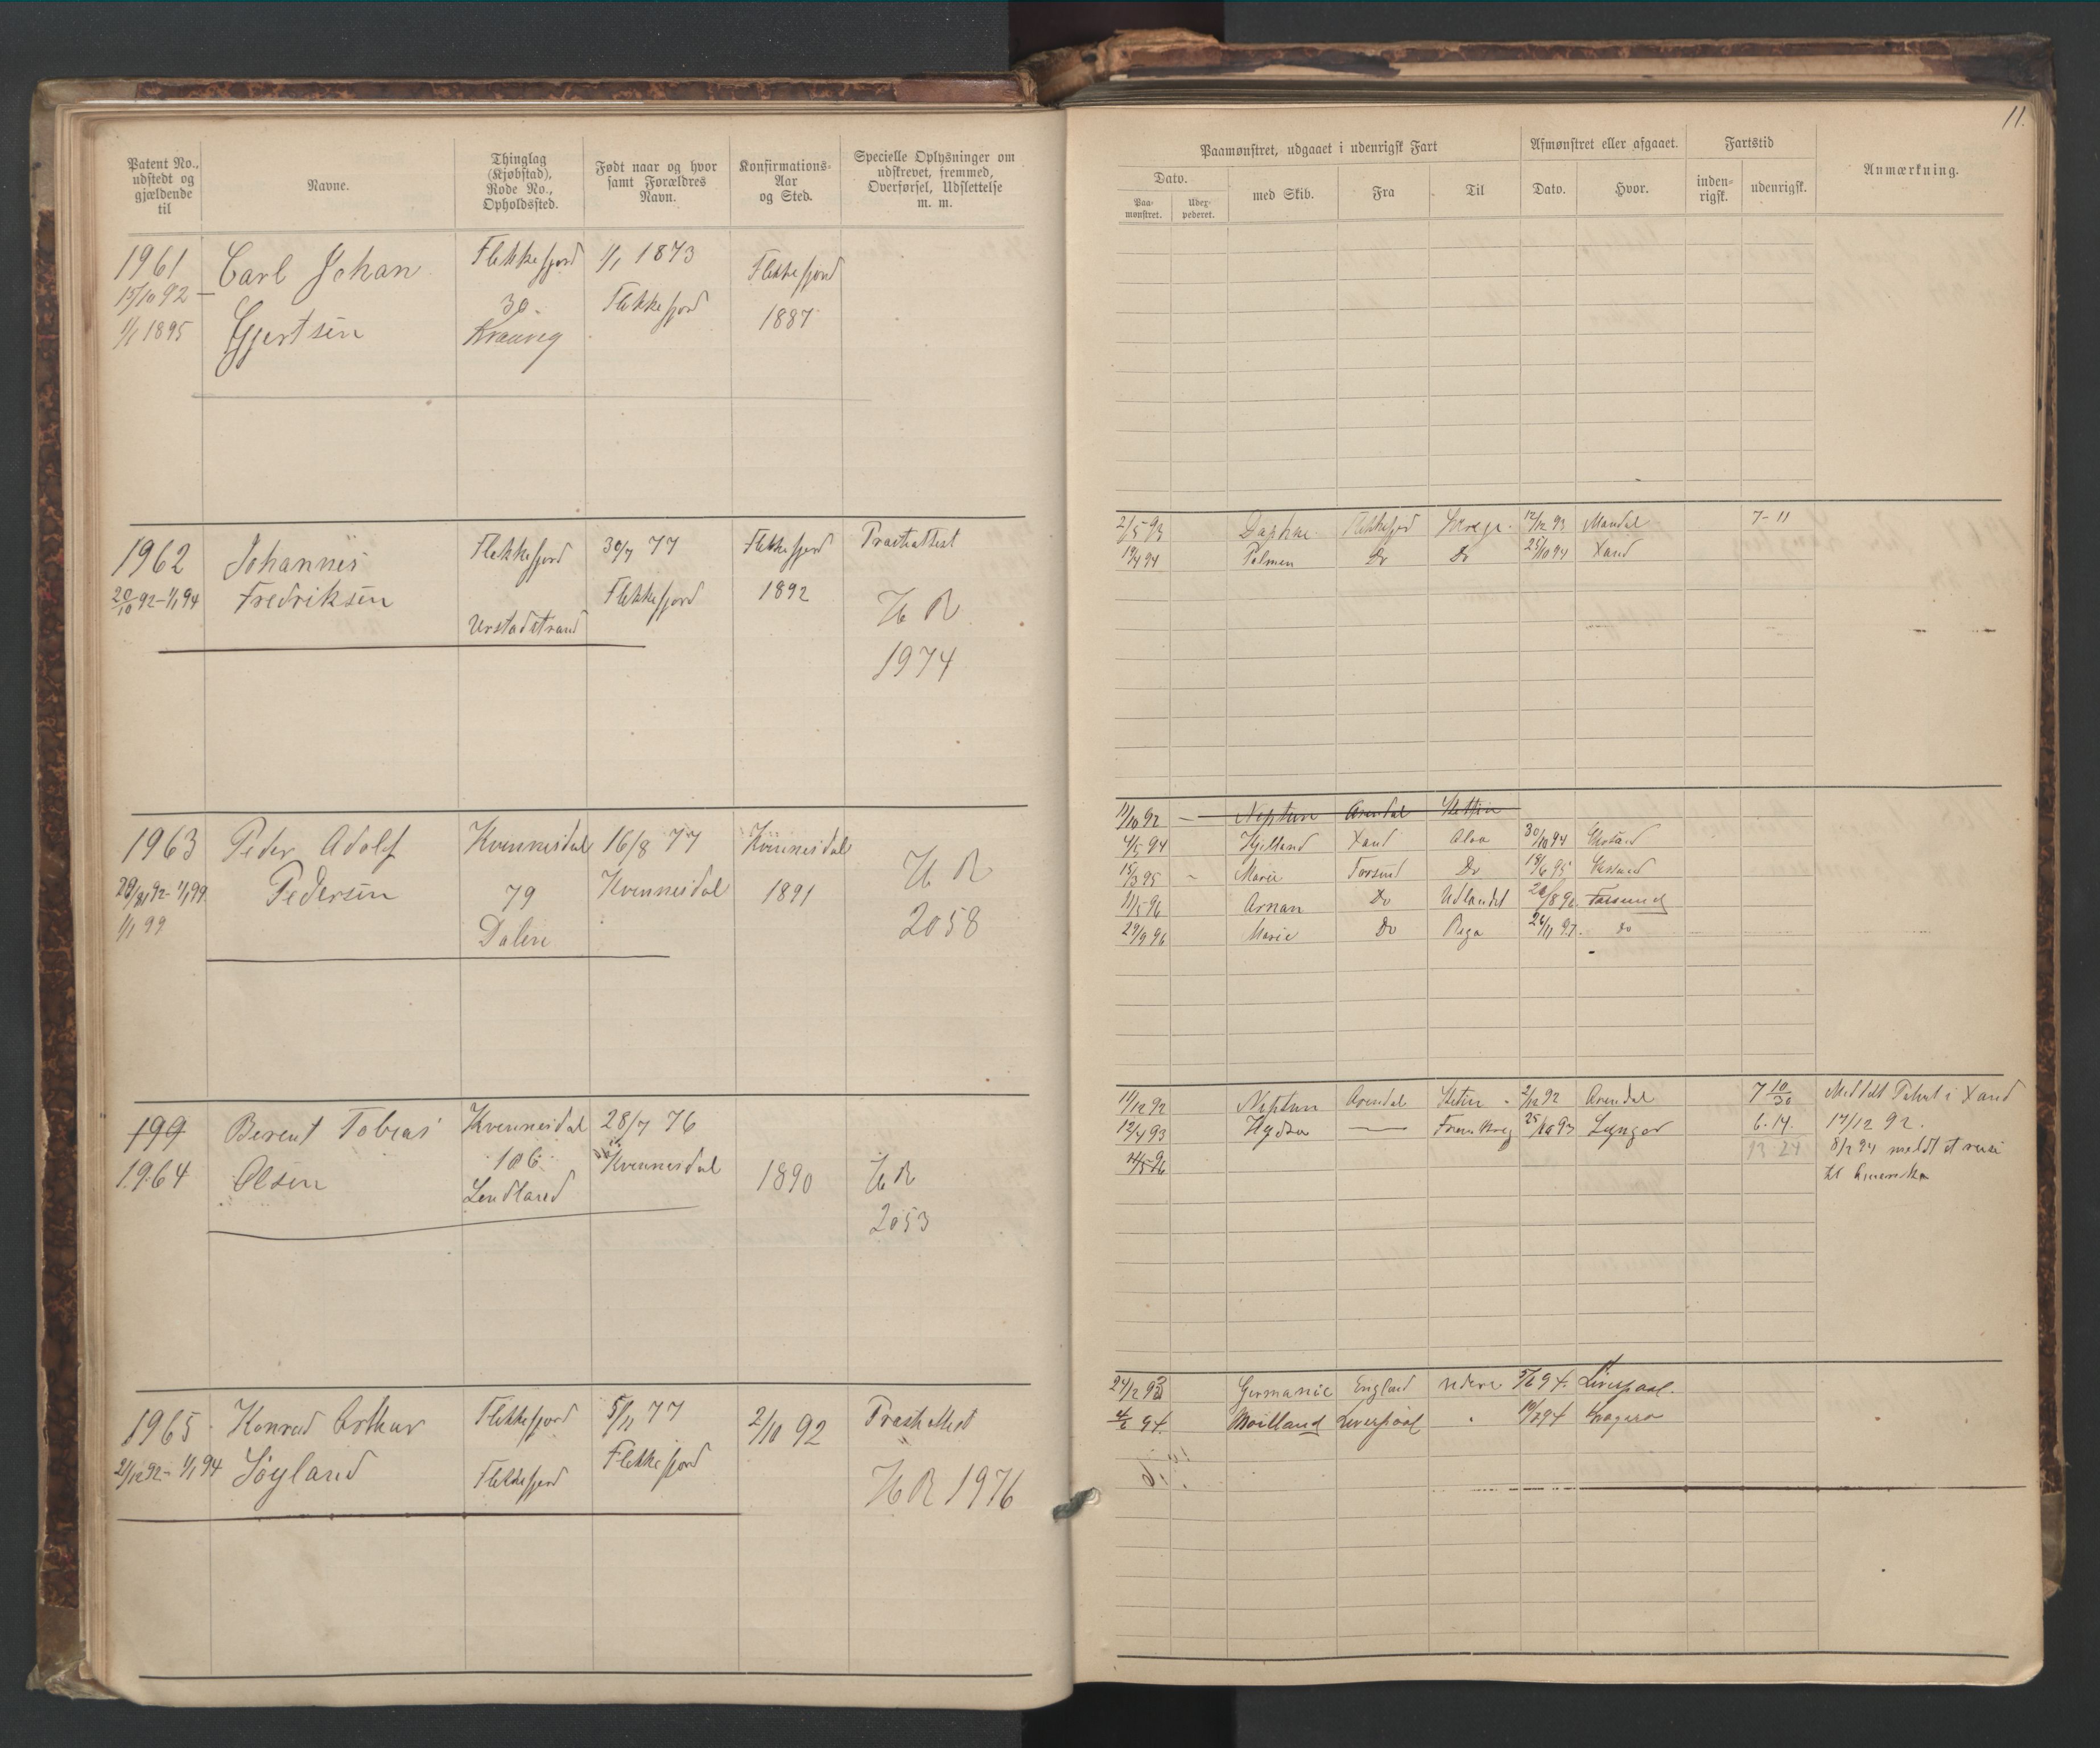 Patent No., udstedt og gjældende til
Navne.
Thinglag (Kjøbstad), Rode No., Opholdssted.
Født naar og hvor samt Forældres Navn.
Konfirmations-Aar og Sted.
Specielle Oplysninger om udskrevet, fremmed, Overførsel, Udslettelse m. m.
1961
15/10 92 –
1/1 1895
Carl Johan
Gjertsen
Flekkefjord
30.
1/1 1873
Flekkefjord
Flekkefjord
1887
1962
20/10 92 – 1/1 94
Johannes
Fredriksen
Flekkefjord
Urstadstrand
30/7 77
Flekkefjord
Flekkefjord
1892
Præstiattest
H R
1974
1963
1/1 99
Peder Adolf
Pedersen
Kvinnesdal
79
Dalen
16/8 77
Kvinnesdal
Kvinnesdal
1891
H R
2058
199
1964
Berent Tobias
Olsen
Kvinnesdal
106
Lendland
28/7 76
Kvinnesdal
1890
H R
2053
1965
21/12 92 – 1/1 94
Konrad Arthur
Søyland
Flekkefjord
Flekkefjord
5/11 77
Flekkefjord
2/10 92
Præstiattest
H R 1976
11.
Paamønstret, udgaaet i udenrigsk Fart
Afmønstret eller afgaaet.
Fartstid
Anmærkning.
Dato.
Paa-mønstret.
Udex-pederet.
med Skib.
Fra
Til
Dato.
Hvor.
inden-rigsk.
udenrigsk.
2/5 93 Daphne Flekkefjord 12/12 93 Mandal 7-11
19/4 94 Palmen Do Do 25/10 94 Xand
11/10 92 — Neptun Arendal Stettin
4/5 94 Hjelland Xand Aloa 30/10 94
15/3 95 Marie Farsund Do 18/6 95
11/5 96 Arnan Do Udlandet 20/8 96 Farsund
29/9 96 Marie Do Riga 26/11 97. do
11/12 92 Neptun Arendal Stetin 2/12 92 Arendal 7 10/30 Meddelt Patent i Xand
12/4 93 Hydra — Frankrig 25/10 93 Lyngør 6.14. 17/12 92.
13 24 8/2 94 meldt at reise
til Amerika
24/12 93 Germania England videre 5/6 94. Liverpool.
94 Moilland Liverpool 19/7 94 Kragerø